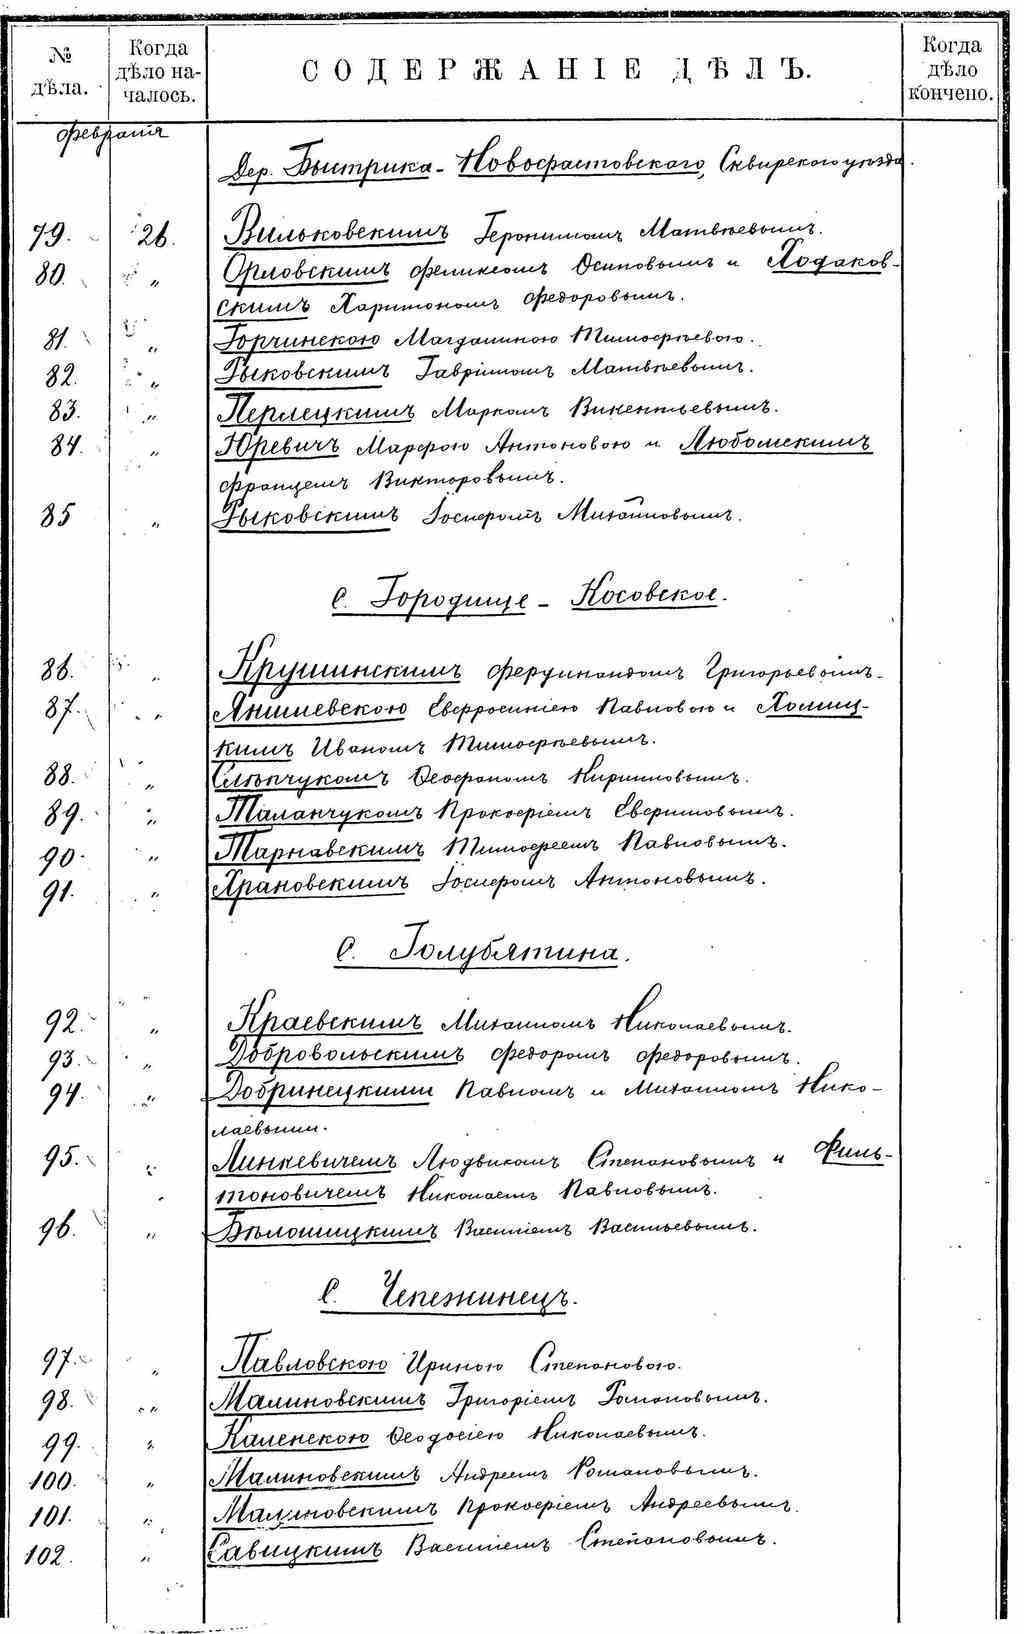 № дѣла.
Когда дѣло началось.
СОДЕРЖАНІЕ ДѢЛЪ.
Когда дѣло кончено.
февраля
Дер. Быстрика-Новофастовского, Сквирского уѣзда.
79. 26. Вильковскимъ Геронимомъ Матвѣевымъ.
80. „ Орловскимъ Феликсомъ Осиповымъ и Ходаков-
скимъ Харитономъ Федоровымъ.
81. „ Горчинскою Магдалиною Тимофѣевою.
82. „ Рыковскимъ Гавріиломъ Матвѣевымъ.
83. „ Перлецкимъ Маркомъ Викентьевымъ.
84. „ Юревичъ Марфою Антоновою и Любомскимъ
Францемъ Викторовымъ.
85 „ Рыковскимъ Іосифомъ Михайловымъ.
С. Городище-Косовское.
86. „ Крушинскимъ Фердинандомъ Григорьевымъ.
87. „ Яншевскою Евфросиніею Павловою и Холмиц-
кимъ Иваномъ Тимофѣевымъ.
88. „ Слѣпчукомъ Ѳеофаномъ Кирилловымъ.
89. „ Таланчукомъ Прокофіемъ Евфимовымъ.
90. „ Тарнавскимъ Тимофеемъ Павловымъ.
91. „ Храновскимъ Іосифомъ Антоновымъ.
С. Голубятина.
92. „ Краевскимъ Михаиломъ Николаевымъ.
93. „ Добровольскимъ Федоромъ Федоровымъ.
94. „ Добринецкими Павломъ и Михаиломъ Нико-
лаевыми.
95. „ Линкевичемъ Людвикомъ Степановымъ и Филь-
тоновичемъ Николаемъ Павловымъ.
96. „ Бѣлошицкимъ Василіемъ Васильевымъ.
С. Чепежинецъ.
97. „ Павловскою Ириною Степановою.
98. „ Малиновскимъ Григоріемъ Романовымъ.
99. „ Каленскою Ѳеодосіею Николаевымъ.
100. „ Малиновскимъ Андреемъ Романовымъ.
101. „ Малиновскимъ Прокофіемъ Андреевымъ.
102. „ Савицкимъ Василіемъ Степановымъ.